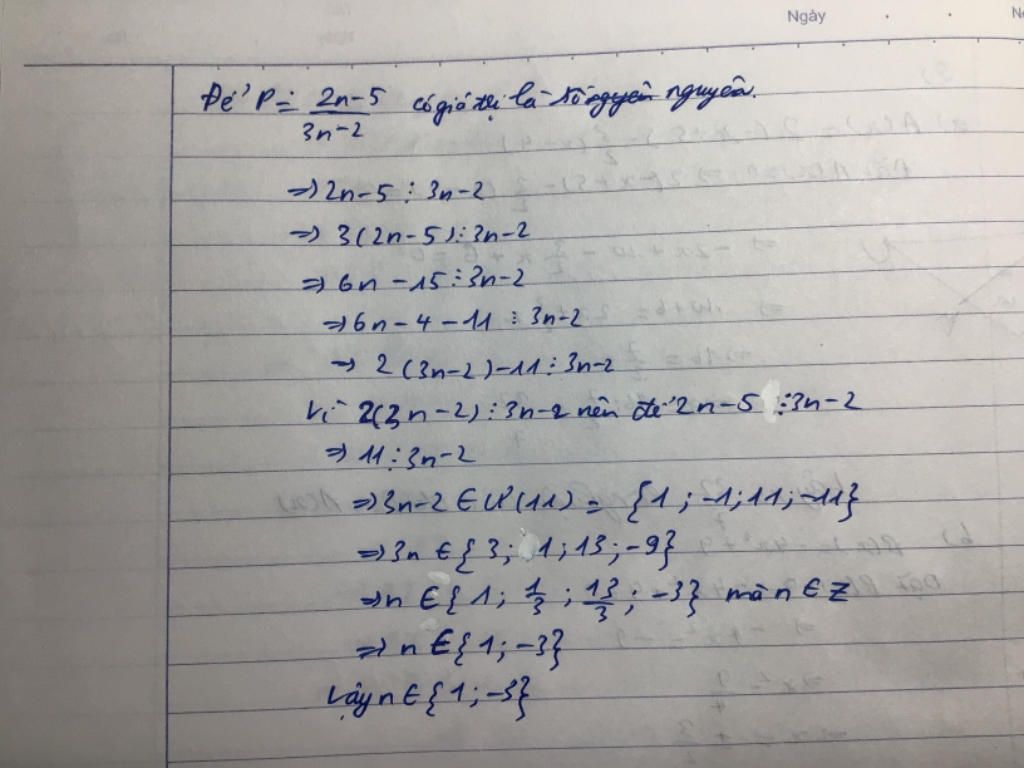 Ngày
Để P = 2n-5/3n-2 có giá trị là số nguyên nguyên.
=> 2n-5 ⋮ 3n-2
=> 3(2n-5) ⋮ 3n-2
=> 6n -15 ⋮ 3n-2
=> 6n-4-11 ⋮ 3n-2
=> 2(3n-2)-11 ⋮ 3n-2
Vì 2(3n-2) ⋮ 3n-2 nên để 2n-5 ⋮ 3n-2
=> 11 ⋮ 3n-2
=> 3n-2 ∈ Ư(11) = {1; -1; 11; -11}
=> 3n ∈ {3; 1; 13; -9}
=> n ∈ {1; 1/3; 13/3; -3} mà n ∈ Z
=> n ∈ {1; -3}
Vậy n ∈ {1; -3}